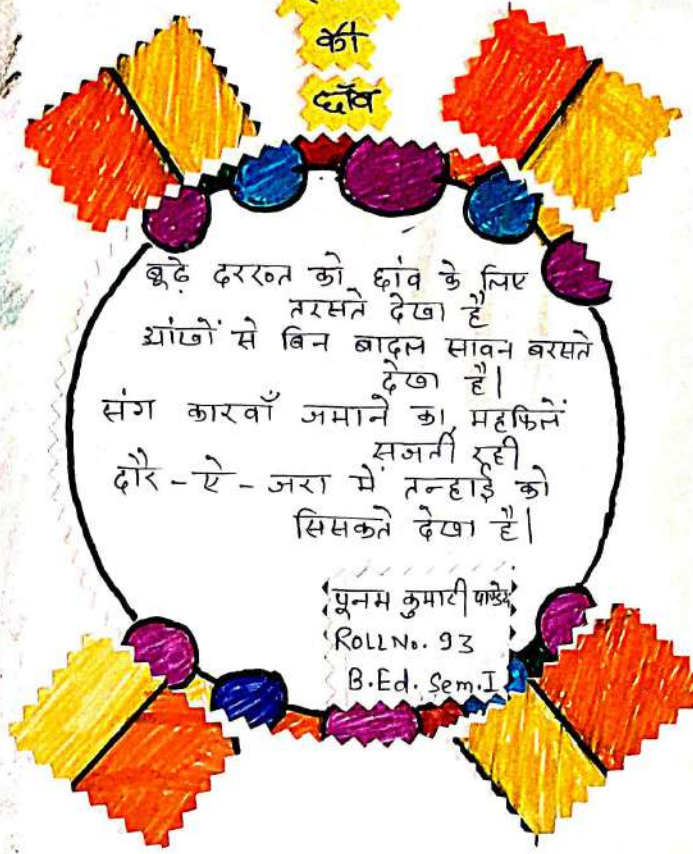 की
छाँव
बूढ़े दरख्त को छांव के लिए
तरसते देखा है
आंखों से बिन बादल सावन बरसते
देखा है|
संग कारवाँ जमाने का, महफिलें
सजती रही
दौर-ऐ-जरा में तन्हाई को
सिसकते देखा है|
पूनम कुमारी पाण्डेय
ROLL No. 93
B.Ed. Sem. I